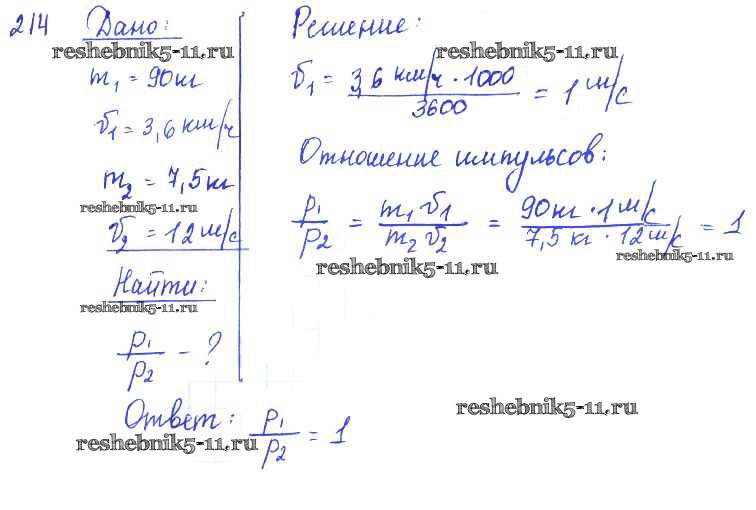 214 Дано:
reshebnik5-11.ru
m₁ = 90 кг
v₁ = 3,6 км/ч
m₂ = 7,5 кг
reshebnik5-11.ru
v₂ = 12 м/с
Найти:
reshebnik5-11.ru
p₁/p₂ - ?
Решение:
reshebnik5-11.ru
v₁ = 3,6 км/ч · 1000 / 3600 = 1 м/с
Отношение импульсов:
p₁/p₂ = m₁v₁/m₂v₂ = 90 кг · 1 м/с / 7,5 кг · 12 м/с = 1
reshebnik5-11.ru
reshebnik5-11.ru
Ответ: p₁/p₂ = 1
reshebnik5-11.ru
reshebnik5-11.ru